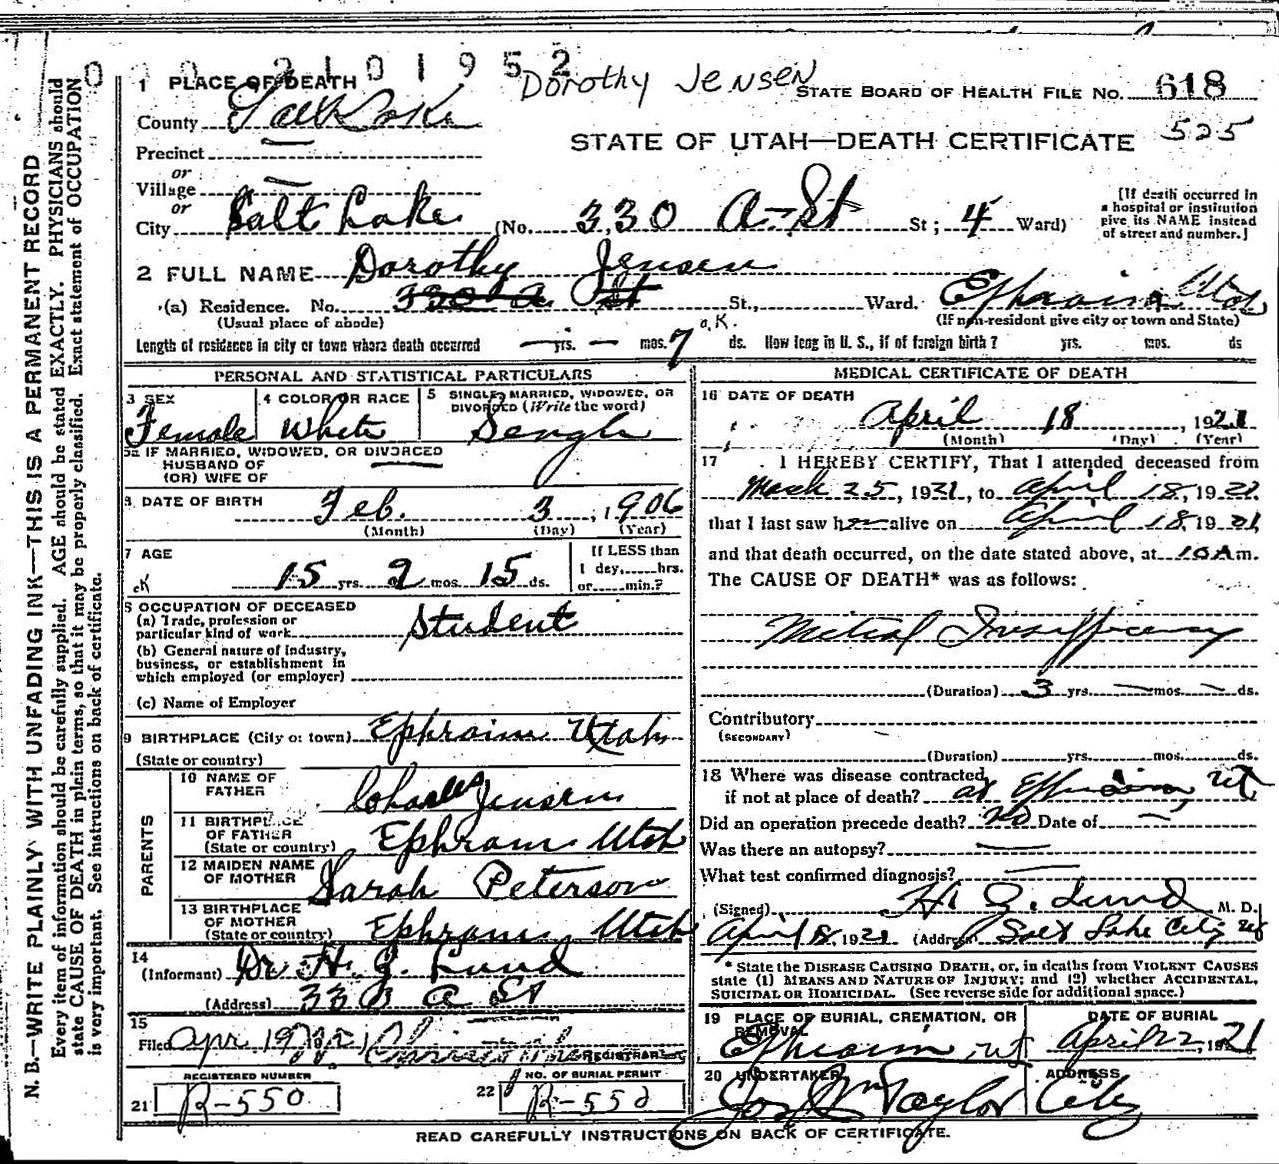 2101952
Dorothy Jensen
1 PLACE OF DEATH
STATE BOARD OF HEALTH FILE NO. 618
County Salt Lake
STATE OF UTAH—DEATH CERTIFICATE 525
Precinct
or
Village
or
City Salt Lake (No. 330 A-St St; 4 Ward)
[If death occurred in
a hospital or institution
give its NAME instead
of street and number.]
2 FULL NAME Dorothy Jensen
(a) Residence. No. 330 A St St., Ward. Ephraim Utah
(Usual place of abode) (If non-resident give city or town and State)
Length of residence in city or town where death occurred — yrs. — mos. 7 ds. How long in U. S., if of foreign birth? yrs. mos. ds
o.K.
PERSONAL AND STATISTICAL PARTICULARS
3 SEX Female
4 COLOR OR RACE White
5 SINGLE, MARRIED, WIDOWED, OR
DIVORCED (Write the word)
Single
5a IF MARRIED, WIDOWED, OR DIVORCED
HUSBAND OF
(OR) WIFE OF
6 DATE OF BIRTH Feb. 3, 1906
(Month) (Day) (Year)
7 AGE 15 yrs 2 mos 15 ds.
If LESS than
1 day,......hrs.
or......min.?
OK
8 OCCUPATION OF DECEASED
(a) Trade, profession or
particular kind of work Student
(b) General nature of industry,
business, or establishment in
which employed (or employer)
(c) Name of Employer
9 BIRTHPLACE (City or town) Ephraim Utah
(State or country)
PARENTS
10 NAME OF
FATHER Charles Jensen
11 BIRTHPLACE
OF FATHER
(State or country) Ephraim Utah
12 MAIDEN NAME
OF MOTHER Sarah Peterson
13 BIRTHPLACE
OF MOTHER
(State or country) Ephraim Utah
14
(Informant) Dr. H. G. Lund
(Address) 330 A St
15
Filed Apr 19
REGISTRAR
REGISTERED NUMBER
21 R-550
NO. OF BURIAL PERMIT
22 R-552
MEDICAL CERTIFICATE OF DEATH
16 DATE OF DEATH
April 18, 1921
(Month) (Day) (Year)
17 I HEREBY CERTIFY, That I attended deceased from
March 25, 1921, to April 18, 1921
that I last saw her alive on April 18 1921
and that death occurred, on the date stated above, at 10 A m.
The CAUSE OF DEATH* was as follows:
Mitral Insufficiency
(Duration) 3 yrs. — mos. — ds.
Contributory
(SECONDARY)
(Duration) yrs. mos. ds.
18 Where was disease contracted
if not at place of death? at Ephraim, Ut
Did an operation precede death? No Date of —
Was there an autopsy? —
What test confirmed diagnosis? —
(Signed) H. G. Lund M. D.
April 18, 1921 (Address) Salt Lake City Ut
* State the DISEASE CAUSING DEATH, or, in deaths from VIOLENT CAUSES
state (1) MEANS AND NATURE OF INJURY; and (2) whether ACCIDENTAL,
SUICIDAL OR HOMICIDAL. (See reverse side for additional space.)
19 PLACE OF BURIAL, CREMATION, OR
REMOVAL
Ephraim, Ut
DATE OF BURIAL
April 22, 1921
20 UNDERTAKER
Jos Wm Taylor
ADDRESS
City
READ CAREFULLY INSTRUCTIONS ON BACK OF CERTIFICATE.
N. B.—WRITE PLAINLY WITH UNFADING INK—THIS IS A PERMANENT RECORD
Every item of information should be carefully supplied. AGE should be stated EXACTLY. PHYSICIANS should
state CAUSE OF DEATH in plain terms, so that it may be properly classified. Exact statement of OCCUPATION
is very important. See instructions on back of certificate.